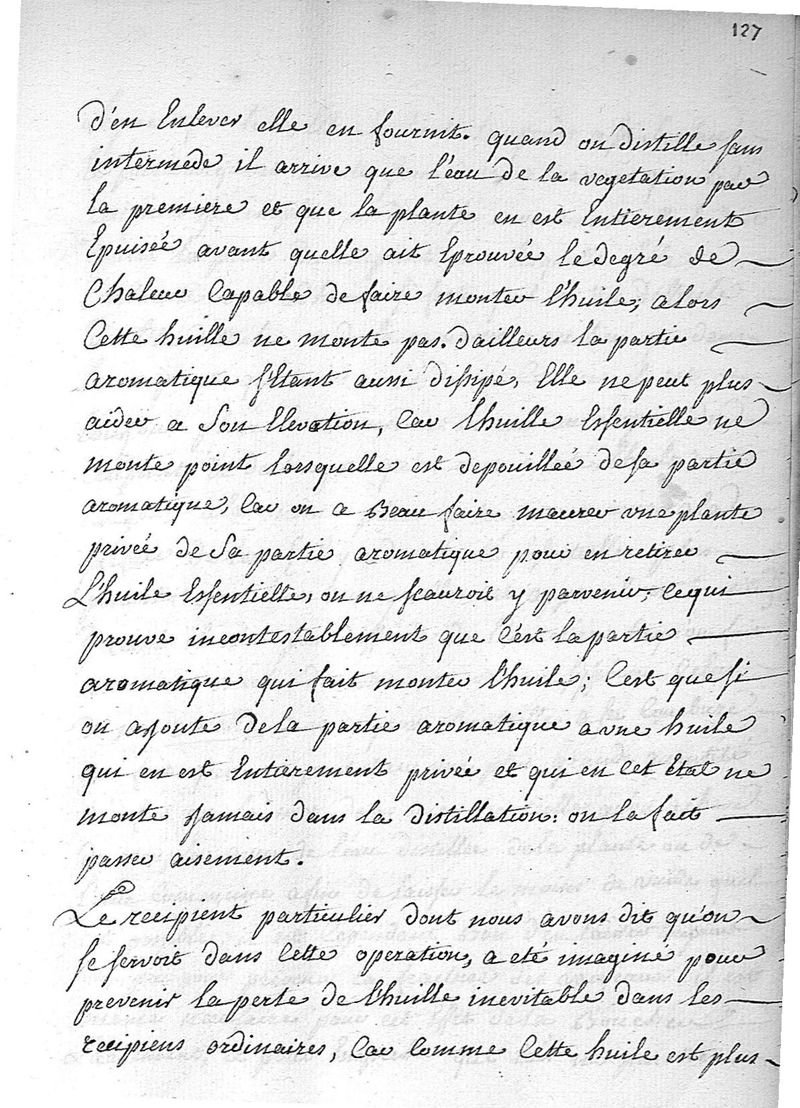 127
d'en Enlever elle en fournit. quand on distille sans
intermede il arrive que l'eau de la vegetation part
la premiere et que la plante en est Entierement
Epuisée avant quelle ait Eprouvée le degré de
Chaleur Capable de faire monter l'huile; alors
Cette huille ne monte pas. d'ailleurs la partie
aromatique s'Etant aussi dissipé, Elle ne peut plus
aider a son Elevation, Car l'huille Essentielle ne
monte point lorsquelle est depouilleé de sa partie
aromatique, Car on a Beau faire une plante
privée de Sa partie aromatique pour en retirer
L'huile Essentielle, on ne scauroit y parvenir; Ce qui
prouve incontestablement que C'est la partie
aromatique qui fait monter l'huile; C'est que si
on ajoute de la partie aromatique a une huile
qui en est Entierement privée et qui en Cet Etat ne
monte Jamais dans la distillation: on la fait
passer aisement.
Le recipient particulier dont nous avons dit qu'on
se servoit dans Cette operation, a eté imaginé pour
prevenir la perte de l'huille inevitable dans les
recipiens ordinaires, Car Comme Cette huile est plus